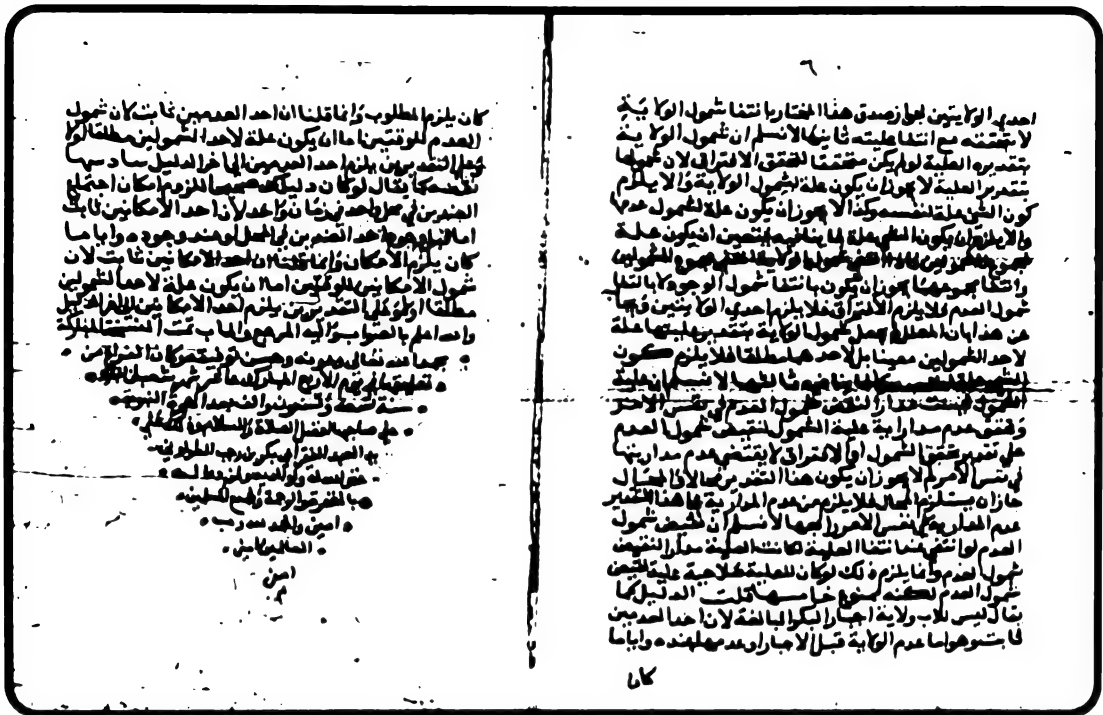 ٦
احدى الولايتين لجواز صدق هذا المختار بانتفا شمول الولاية
لا بتحققه مع انتفا عليته ثانيها لا نسلم ان شمول الولاية
بتقديره العلية لو لم يكن متحققا لتحقق الافتراق لان شمولها
بتقدير العلية لا يجوز ان يكون علة لشمول الولاية والا يلزم
كون الشي علة لنفسه وكذا لا يجوز ان يكون علة لشمول عدمها
والا يلزم ان يكون الشي علة لما ينافيه فيتعين ان يكون علة
شمول الولاية
وانتفا مجموعهما يجوز ان يكون بانتفا شمول الوجود لا بانتفا
شمول العدم فلا يلزم الافتراق فلا يلزم احدى الولايتين
عن هذا بان المعلل جعل شمول الولاية بتقدير عليتها علة
لاحد الشمولين معينا بل لاحدهما مطلقا فلا يلزم كون
ثالثها لا نسلم ان علية
الشمول مدارا لنقيض شمول العدم في نفس الامر
وتحقق عدم مدارية علية الشمول لنقيض شمول العدم
على تقدير تحقق الشمول او الافتراق لا يقتضي عدم مداريتها
في نفس الامر لم لا يجوز ان يكون هذا التقدير محالا والمحال
جاز ان يستلزم المحال فلا يلزم من عدم المدارية على هذا التقدير
عدم المدارية في نفس الامر رابعها لا نسلم ان نقيض شمول
العدم لو انتفى عند انتفا العلية لكانت العلية مدارا لنقيض
شمول العدم وانما يلزم ذلك لو كان للعلية صلاحية علية نقيض
شمول العدم لكنه ممنوع خامسها قلت الدليل بما
يقال ليس للاب ولاية اجبار البكر البالغة لان احد العدمين
ثابت وهو اما عدم الولاية قبل الاجبار او عدمها عنده واياما
كان
كان يلزم المطلوب وانما قلنا ان احد العدمين ثابت لان شمول
العدم للوقتين اما ان يكون علة لاحد الشمولين مطلقا او لا
وعلى التقديرين يلزم احد العدمين الى اخر الدليل سادسها
نقضه كما يقال لو كان دليلكم صحيحا لزم امكان اجتماع
الضدين في محل واحد في زمان واحد لان احد الامكانين ثابت
اما قبل وجود احد الضدين في المحل او عند وجوده واياما
كان يلزم الامكان وانما قلنا ان احد الامكانين ثابت لان
شمول الامكانين للوقتين اما ان يكون علة لاحد الشمولين
مطلقا او لا وعلى التقديرين يلزم احد الامكانين الى اخر الدليل
والله اعلم بالصواب واليه المرجع والماب تمت النسخة المباركة
بحمد الله تعالى وعونه وحسن توفيقه وكان الفراغ من
تعليقها في يوم الاربع المبارك عاشر شهر
سنة تسعة وتسعون والف بعد الهجرة النبوية
على صاحبها افضل الصلاة والسلام وذلك على
يد العبد الفقير
غفر الله له ولوالديه
بالمغفرة والرحمة ولجميع المسلمين
امين والحمد لله رب
العالمين امين
امين
م